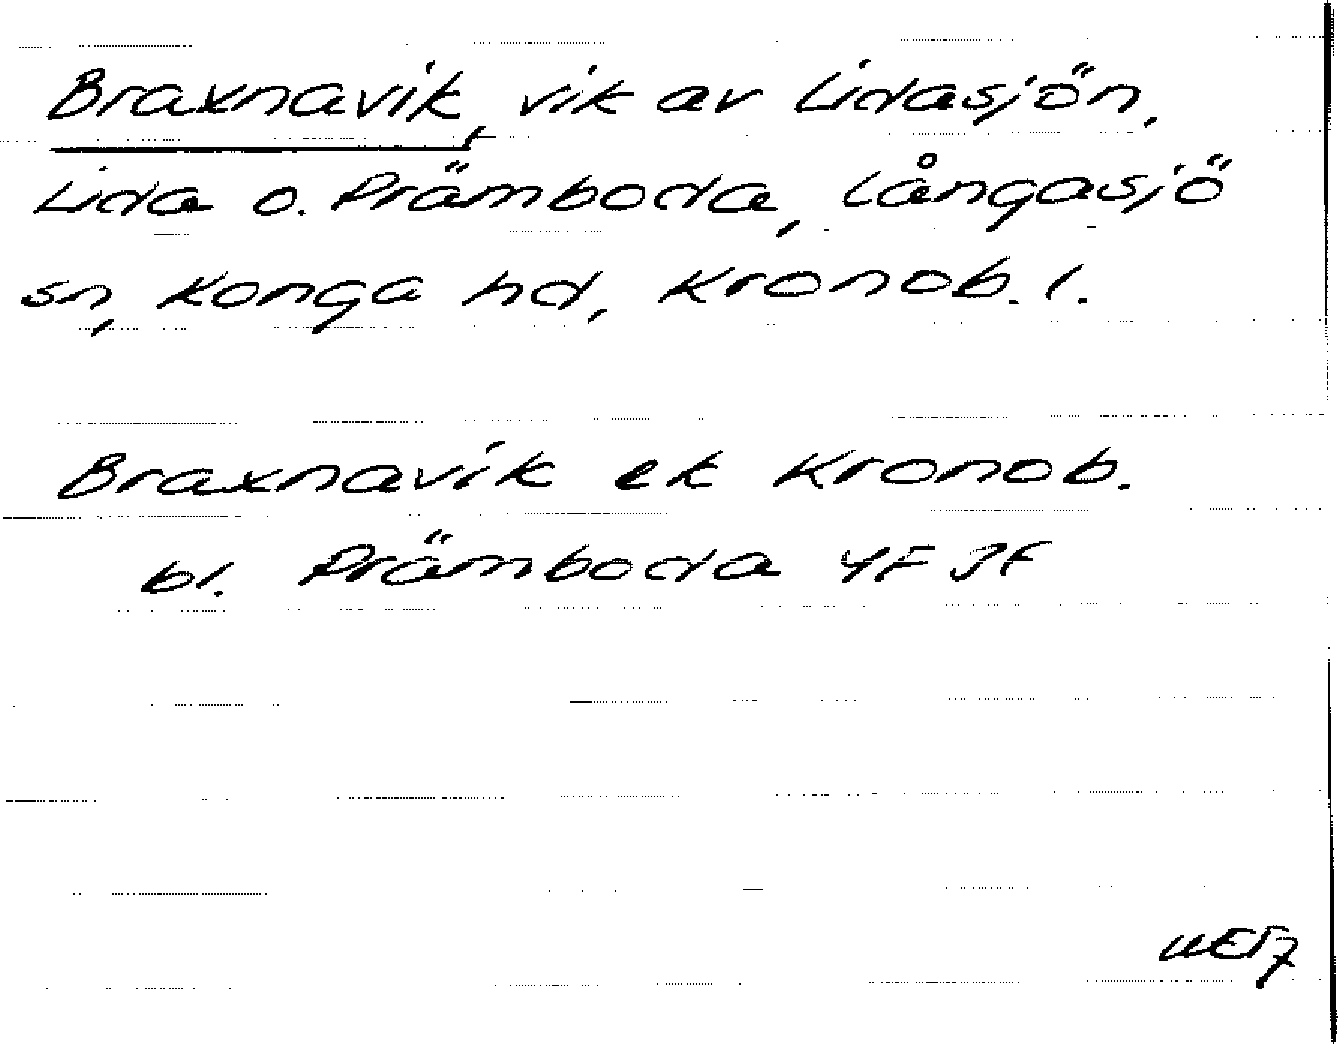 Braxnavik, vik av Lidasjön,
Lida o. Prämboda, Långasjö
sn, Konga hd, Kronob. l.
Braxnavik ek Kronob.
bl. Prämboda 4F 3f